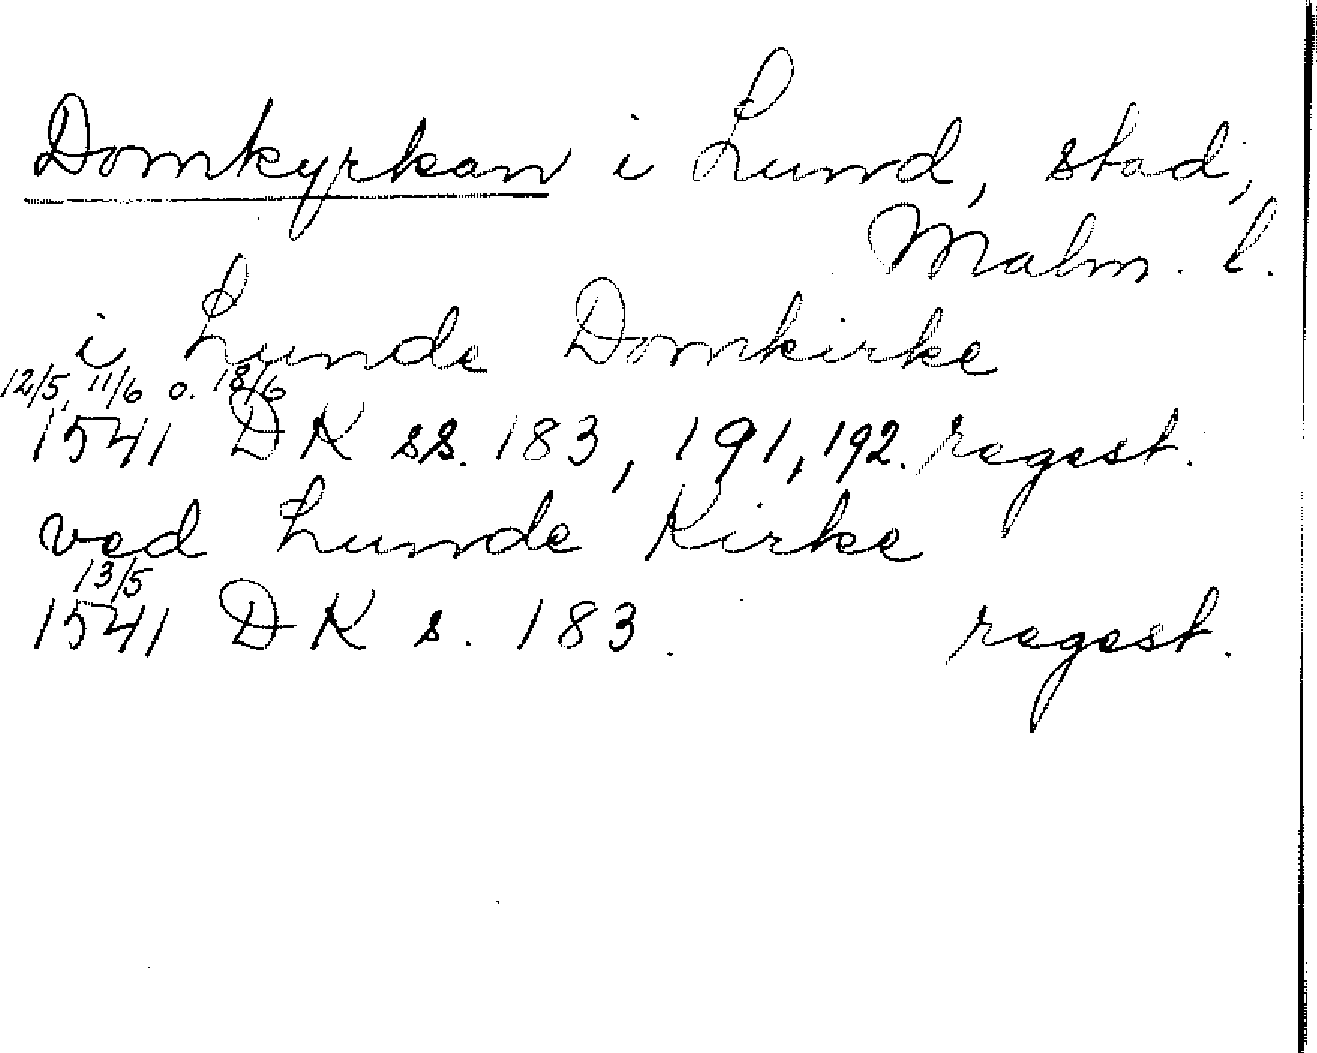 Domkyrkan i Lund, stad,
Malm. l.
i Lunde Domkirke
12/5, 11/6 o. 18/6
1541 DK ss. 183, 191, 192. regest.
ved Lunde Kirke
13/5
1541 DK s. 183. regest.